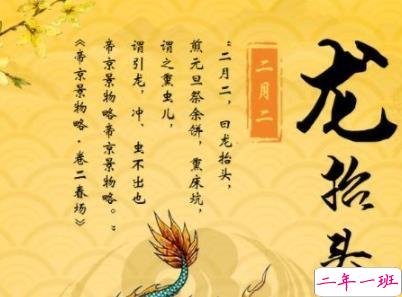 龙抬头
二月二
“二月二，曰龙抬头，
煎元旦祭余饼，熏床炕，
谓之熏虫儿，
谓引龙，冲、虫不出也
帝京景物略帝京景物略。”
《帝京景物略·卷二春场》
二年一班